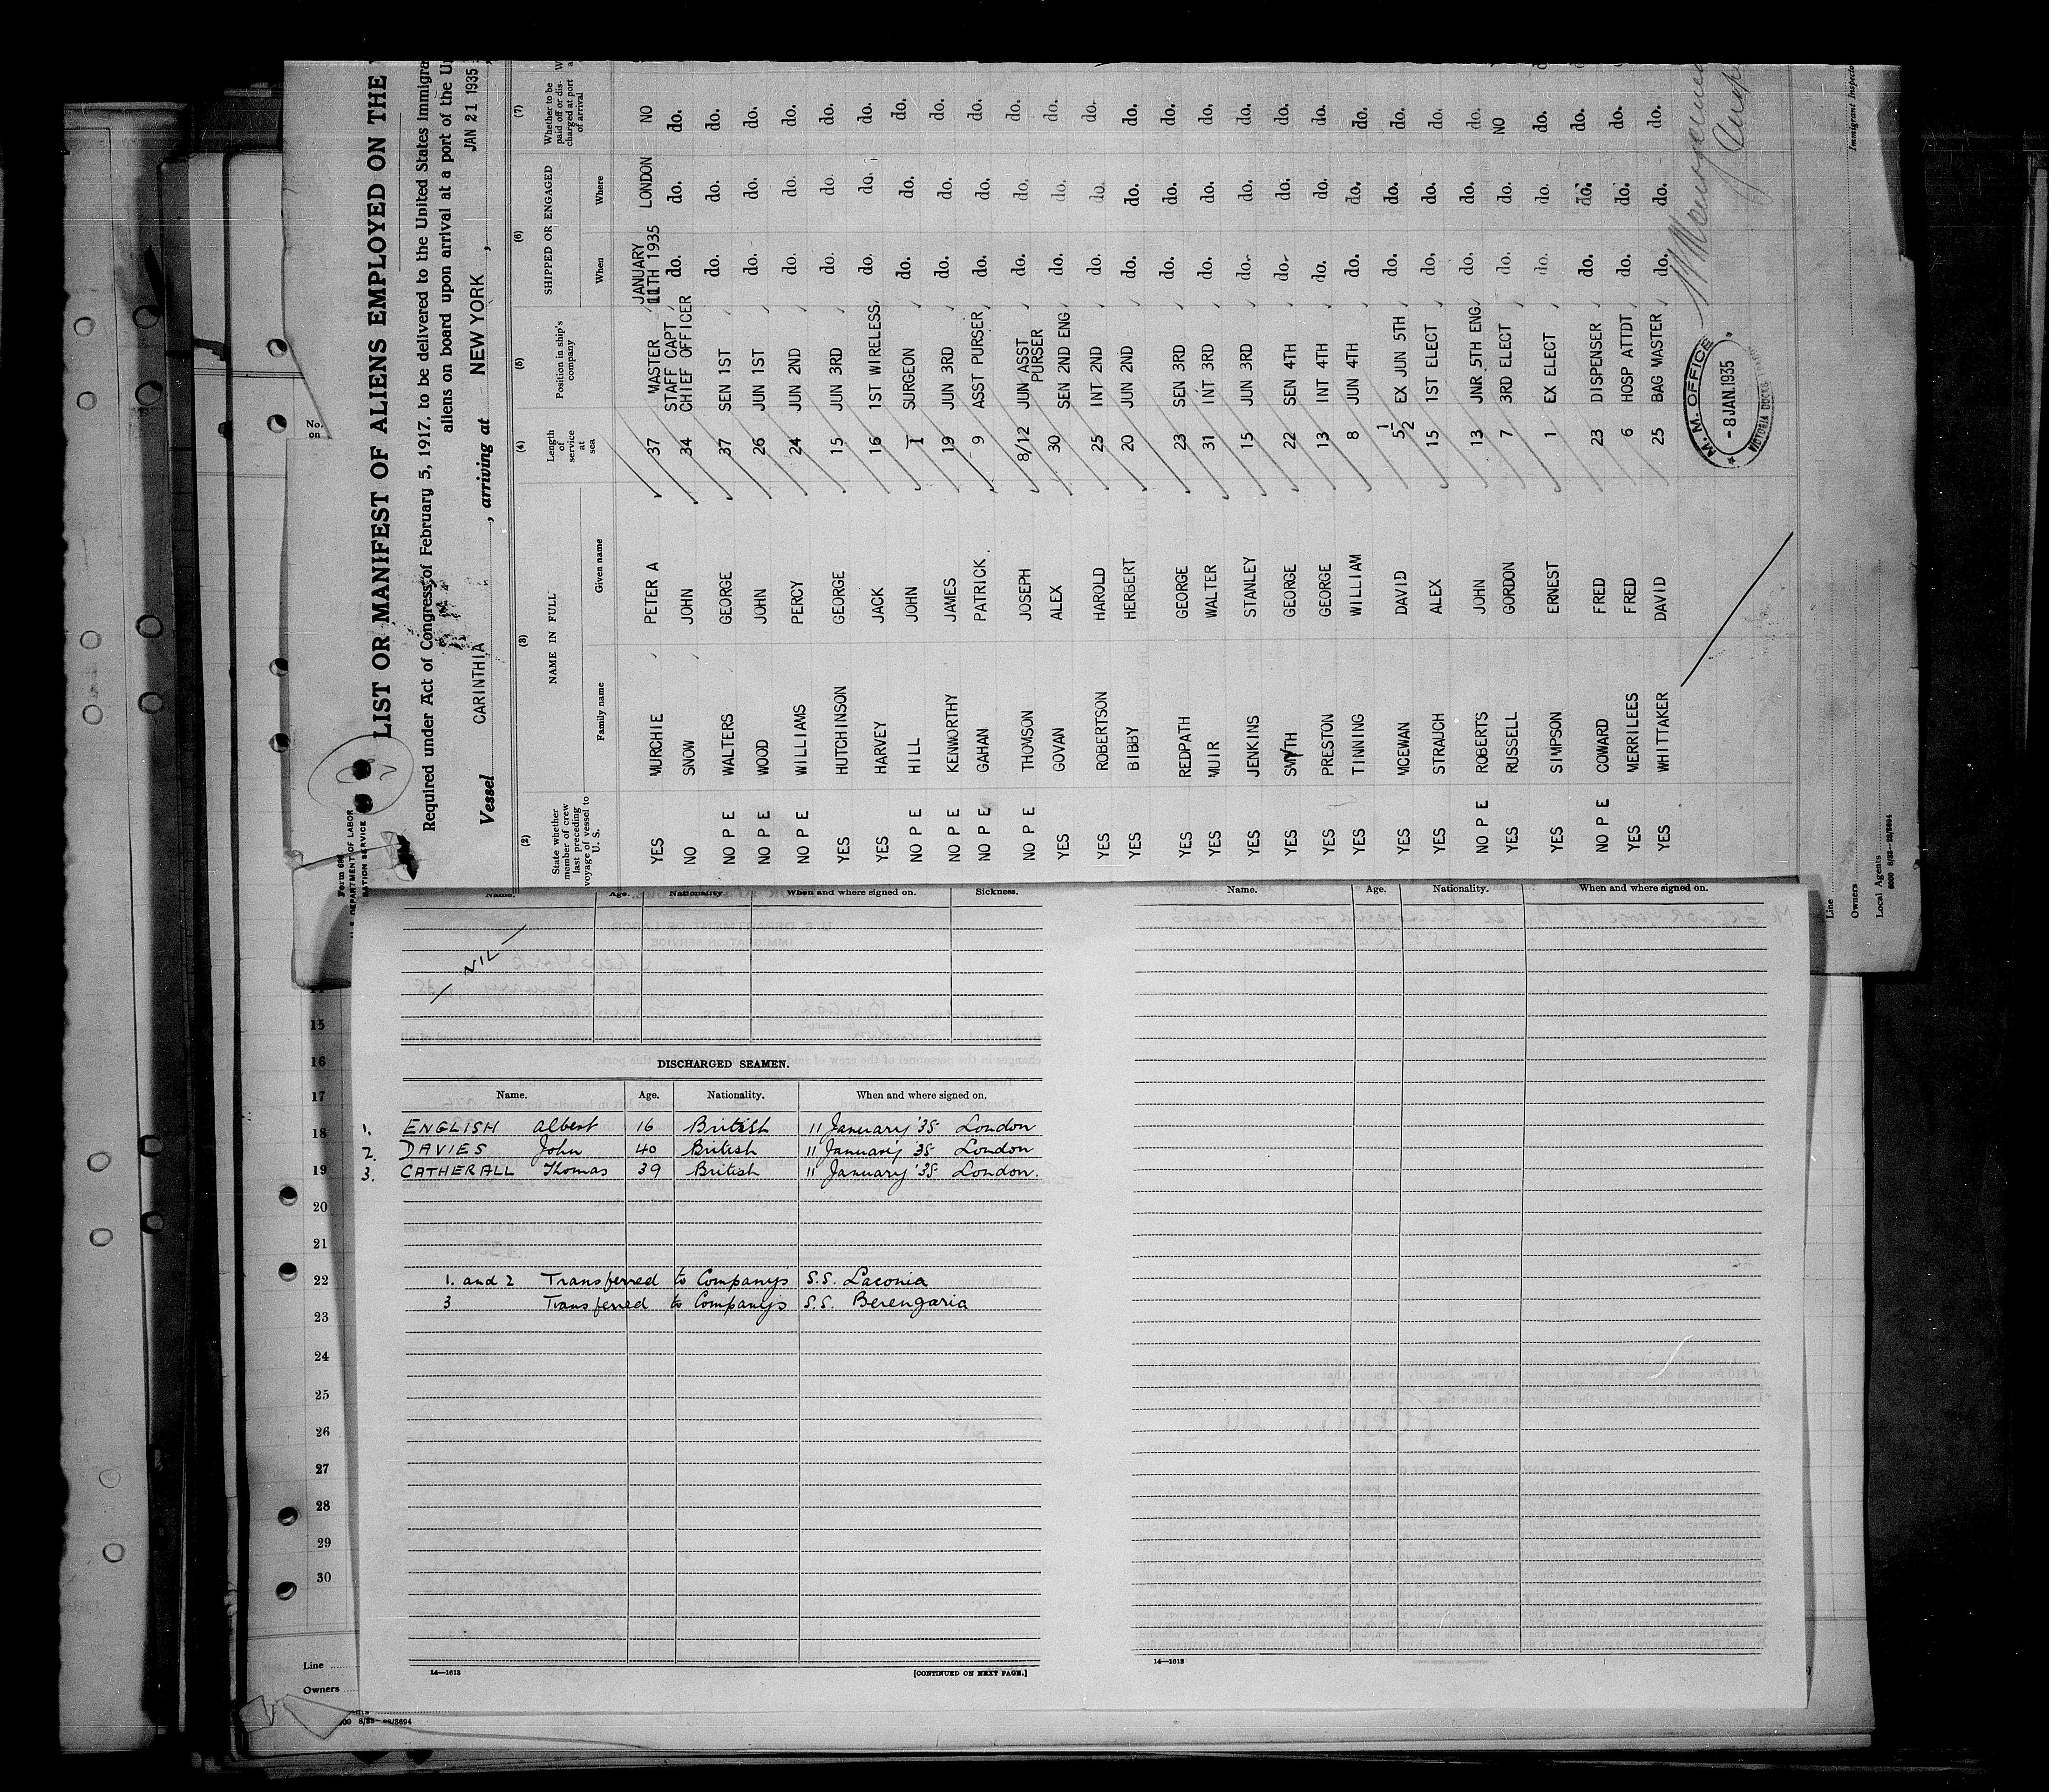 Form 689
U. S. DEPARTMENT OF LABOR
LIST OR MANIFEST OF ALIENS EMPLOYED ON THE
Required under Act of Congress of February 5, 1917, to be delivered to the United States immigra
aliens on board upon arrival at a port of the Un
Vessel CARINTHIA , arriving at NEW YORK , JAN 21 1935
(2) (3) (4) (5) (6) (7)
State whether member of crew last preceding voyage of vessel to U. S. NAME IN FULL Length of service at sea Position in ship's company SHIPPED OR ENGAGED Whether to be paid off or discharged at port of arrival
Family name Given name When Where
YES MURCHIE PETER A 37 MASTER JANUARY 11TH 1935 LONDON NO
NO SNOW JOHN 34 STAFF CAPT CHIEF OFFICER do. do. do.
NO P E WALTERS GEORGE 37 SEN 1ST do. do. do.
NO P E WOOD JOHN 26 JUN 1ST do. do. do.
NO P E WILLIAMS PERCY 24 JUN 2ND do. do. do.
YES HUTCHINSON GEORGE 15 JUN 3RD do. do. do.
YES HARVEY JACK 16 1ST WIRELESS do. do. do.
NO P E HILL JOHN 1 SURGEON do. do. do.
NO P E KENWORTHY JAMES 19 JUN 3RD do. do. do.
NO P E GAHAN PATRICK. 9 ASST PURSER do. do. do.
NO P E THOMSON JOSEPH 8/12 JUN ASST PURSER do. do. do.
YES GOVAN ALEX 30 SEN 2ND ENG do. do. do.
YES ROBERTSON HAROLD 25 INT 2ND do. do. do.
YES BIBBY HERBERT 20 JUN 2ND do. do. do.
YES REDPATH GEORGE 23 SEN 3RD do. do. do.
YES MUIR WALTER 31 INT 3RD do. do. do.
YES JENKINS STANLEY 15 JUN 3RD do. do. do.
YES SMYTH GEORGE 22 SEN 4TH do. do. do.
YES PRESTON GEORGE 13 INT 4TH do. do. do.
YES TINNING WILLIAM 8 JUN 4TH do. do. do.
YES MCEWAN DAVID 5½ EX JUN 5TH do. do. do.
YES STRAUCH ALEX 15 1ST ELECT do. do. do.
NO P E ROBERTS JOHN 13 JNR 5TH ENG do. do. do.
YES RUSSELL GORDON 7 3RD ELECT do. do. NO
YES SIMPSON ERNEST 1 EX ELECT do. do. do.
NO P E COWARD FRED 23 DISPENSER do. do. do.
YES MERRILEES FRED 6 HOSP ATTDT do. do. do.
YES WHITTAKER DAVID 25 BAG MASTER do. do. do.
M. M. OFFICE
- 8 JAN.1935
VICTORIA DOCKS
Immigrant Inspector
Line
Owners
Local Agents
6000 8/33—28/3694
No. on
Name. Age. Nationality. When and where signed on. Sickness.
NIL
DISCHARGED SEAMEN.
Name. Age. Nationality. When and where signed on.
1. ENGLISH Albert 16 British 11 January '35 London
2. DAVIES John 40 British 11 January '35 London
3. CATHERALL Thomas 39 British 11 January '35 London.
1. and 2 Transferred to Company's S.S. Laconia
3 Transferred to Company's S.S. Berengaria
14—1613
[CONTINUED ON NEXT PAGE.]
Name. Age. Nationality. When and where signed on.
14—1613
15
16
17
18
19
20
21
22
23
24
25
26
27
28
29
30
Line
Owners
8/33—28/3694